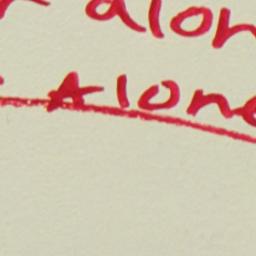 alon
Alone